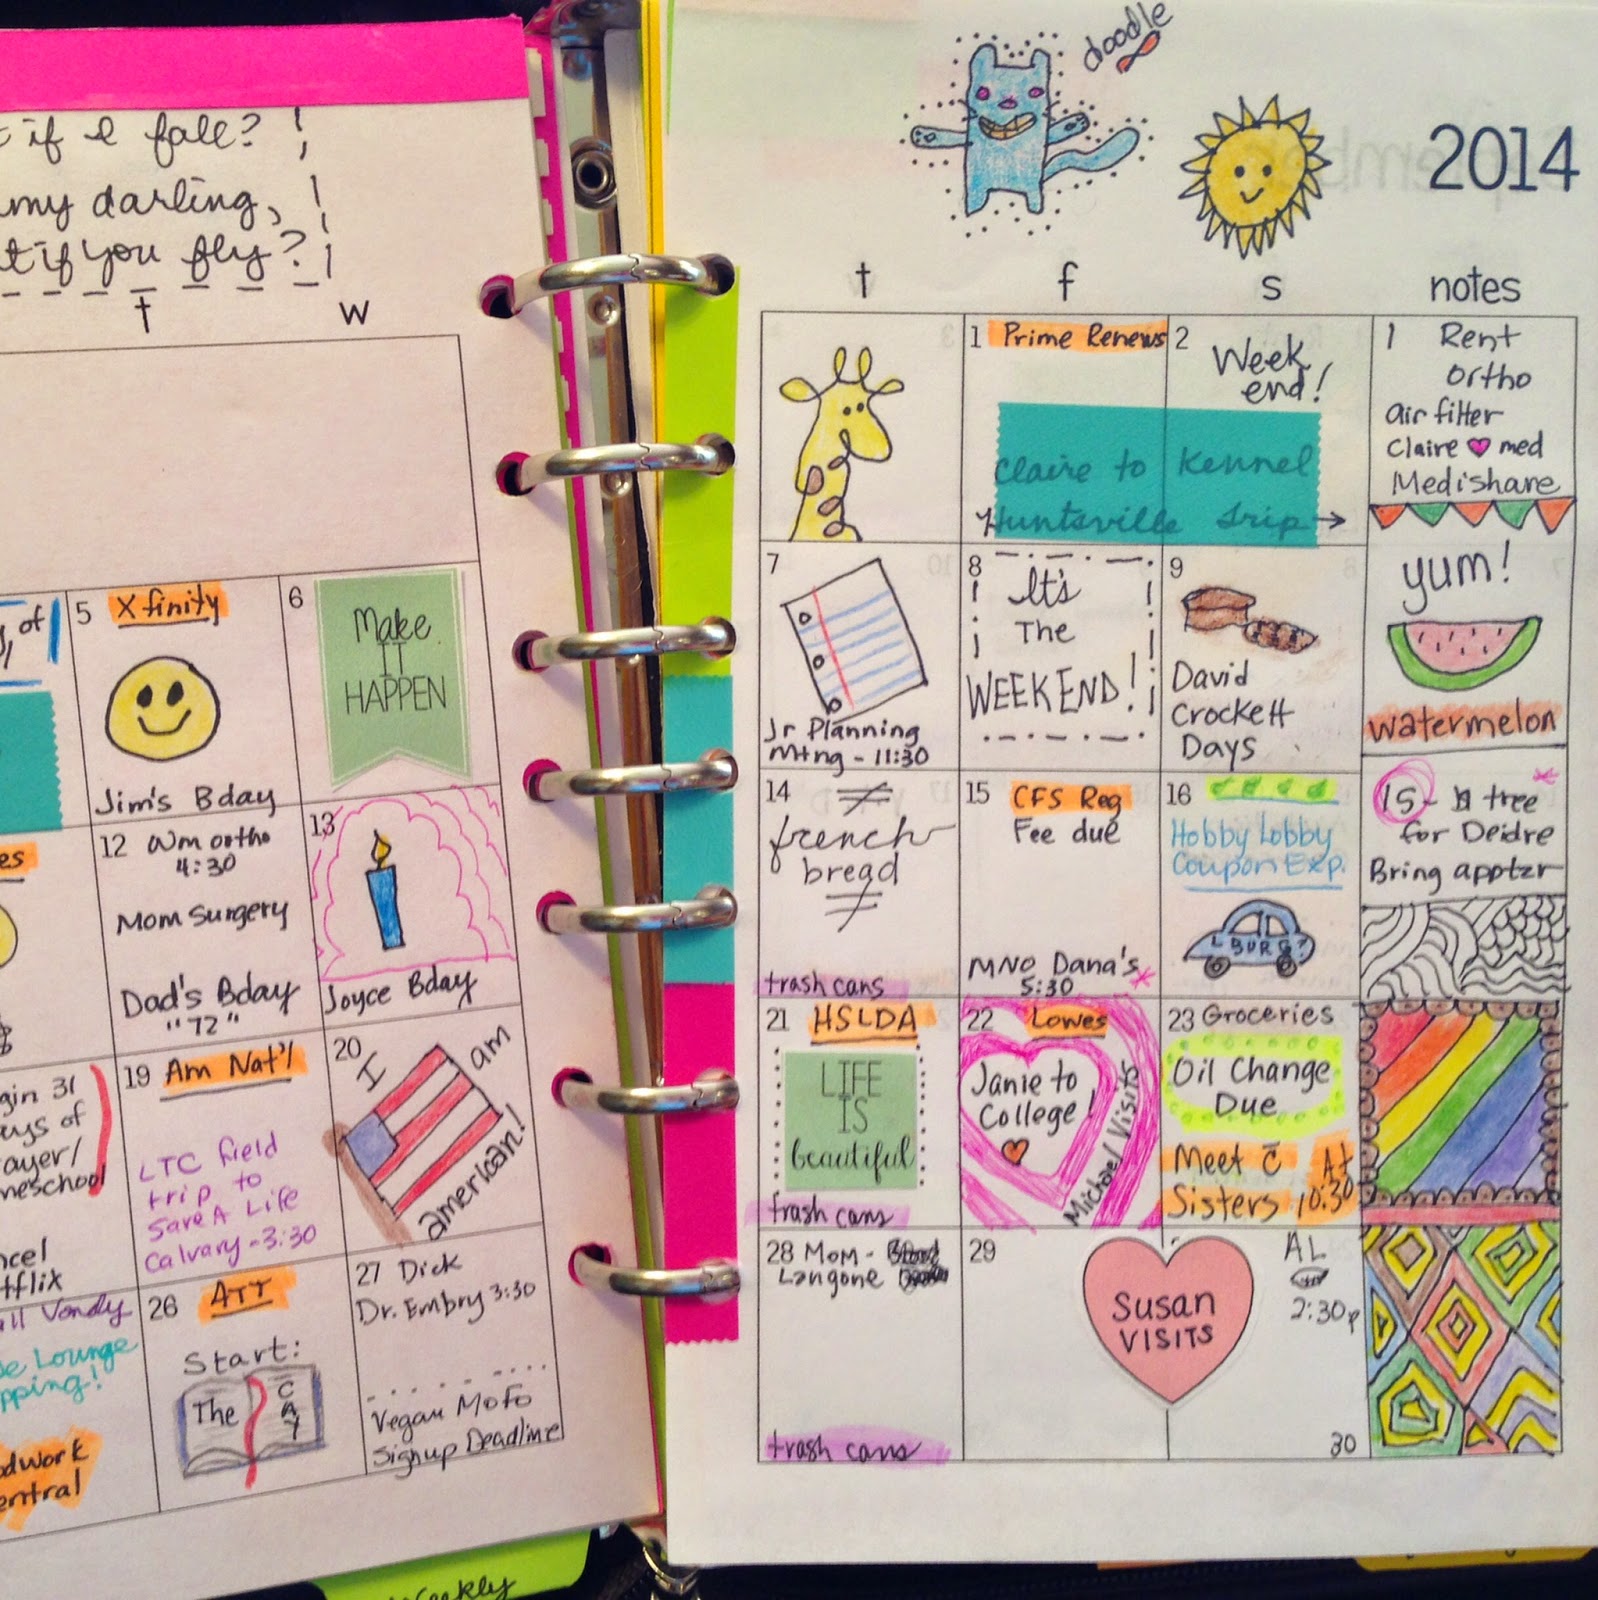 if I fall?
my darling,
if you fly?
t
w
of
5 Xfinity
Jim's Bday
6
Make
IT
HAPPEN
es
12 Wm ortho
4:30
Mom Surgery
Dad's Bday
"72"
13
Joyce Bday
gin 31
ays of
ayer/
meschool
ncel
tflix
19 Am Nat'l
LTC field
trip to
Save A Life
Calvary - 3:30
20
I am
american!
all Vondy
Lounge
pping!
odwork
entral
26 ATT
Start:
The CAY
27 Dick
Dr. Embry 3:30
Vegan MoFo
Signup Deadline
Weekly
doodle
2014
t
f
s
notes
1 Prime Renews
2 Week
end!
Claire to Kennel
Huntsville trip →
1 Rent
Ortho
air filter
Claire ♥ med
Medishare
7
Jr Planning
Mtng - 11:30
8
It's
The
WEEKEND!
9
David
Crockett
Days
yum!
watermelon
14
french
bread
trash cans
15 CFS Reg
Fee due
MNO Dana's*
5:30
16
Hobby Lobby
Coupon Exp.
L BURG?
15 - tree *
for Deidre
Bring apptzr
21 HSLDA
LIFE
IS
beautiful
trash cans
22 Lowes
Janie to
College!
Michael Visits
23 Groceries
Oil Change
Due
Meet c̄ At
Sisters 10:30
28 Mom -
Langone
trash cans
29
Susan
VISITS
AL
2:30p
30